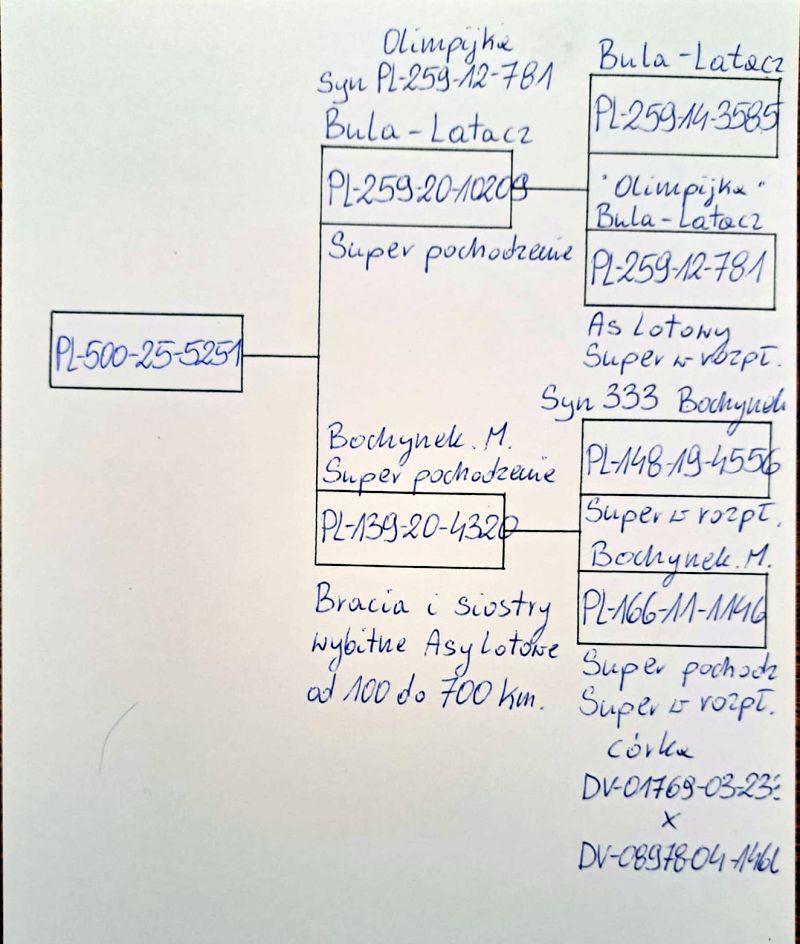 PL-500-25-5251
Olimpijka
Syn PL-259-12-781
Bula-Latacz
PL-259-20-10209
Super pochodzenie
Bochynek. M.
Super pochodzenie
PL-139-20-4320
Bracia i siostry
wybitne Asy lotowe
od 100 do 700 km.
Bula-Latacz
PL-259-14-3585
"Olimpijka"
Bula-Latacz
PL-259-12-781
As lotowy
Super w rozpł.
Syn 333 Bochynek
PL-148-19-4556
Super w rozpł.
Bochynek. M.
PL-166-11-1146
Super pochodz
Super w rozpł.
córka
DV-01769-03-23
x
DV-08978-04-146